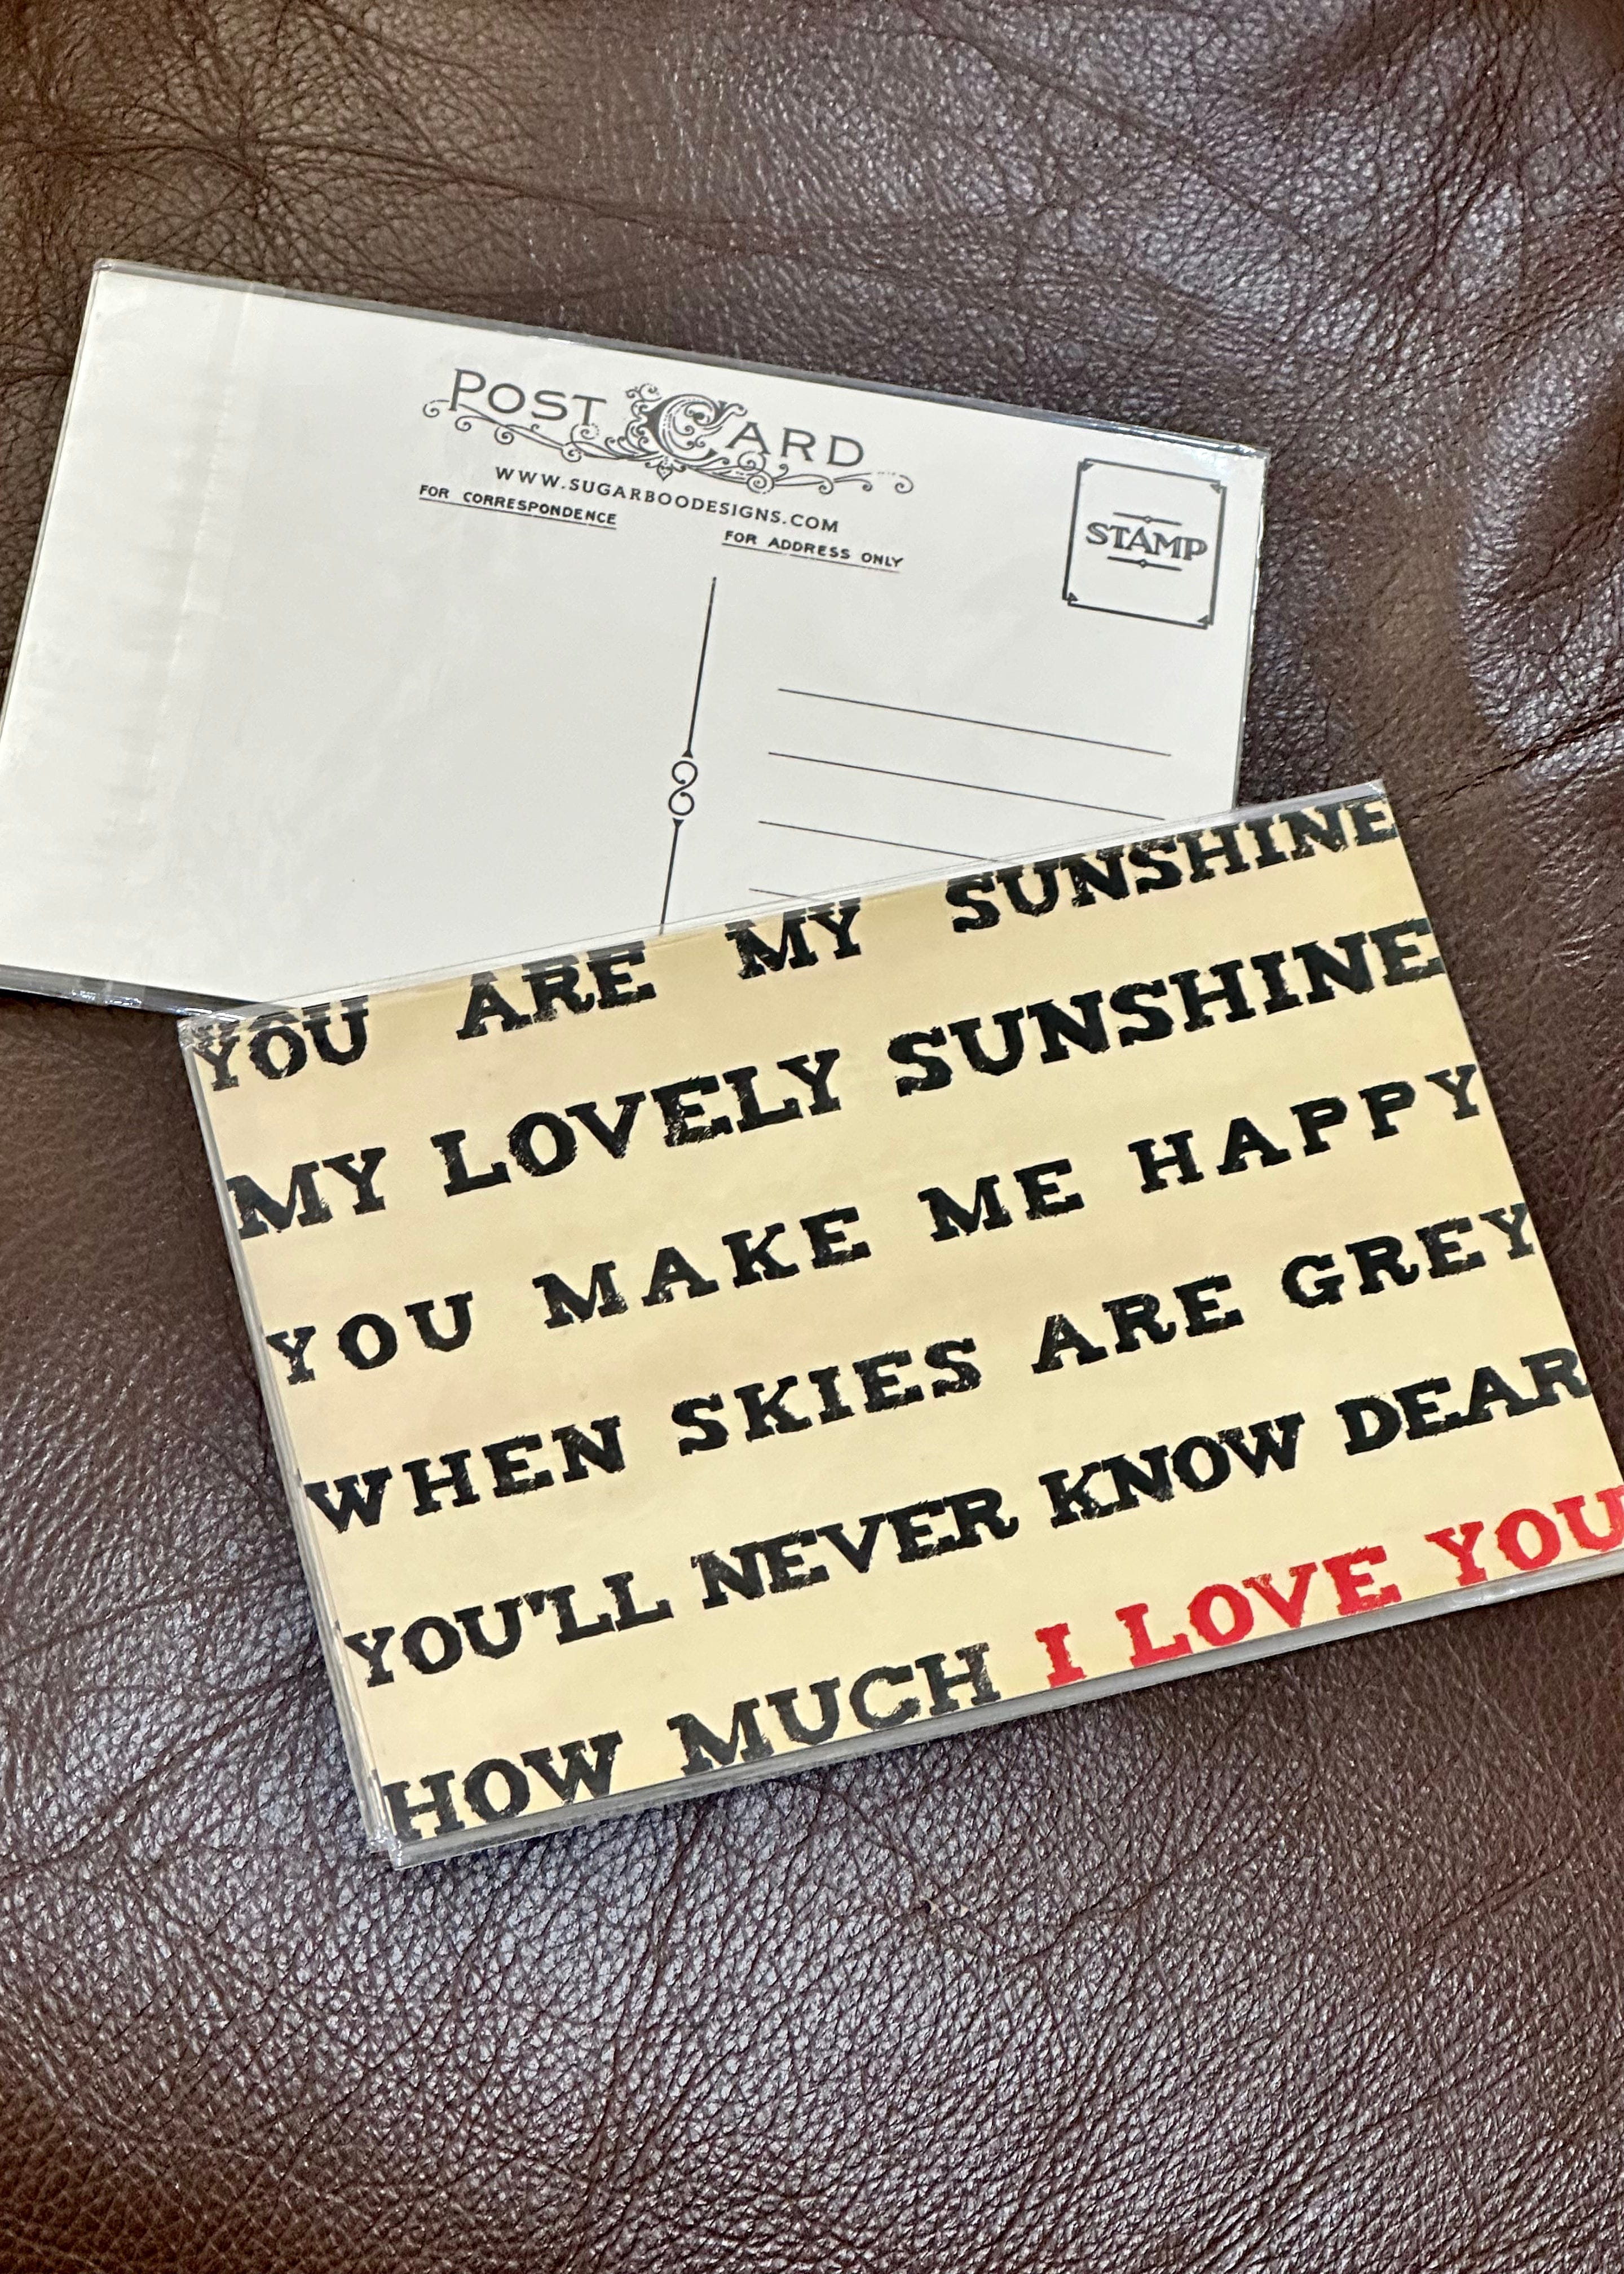 POST CARD
WWW.SUGARBOODESIGNS.COM
FOR CORRESPONDENCE
FOR ADDRESS ONLY
STAMP
YOU ARE MY SUNSHINE
MY LOVELY SUNSHINE
YOU MAKE ME HAPPY
WHEN SKIES ARE GREY
YOU'LL NEVER KNOW DEAR
HOW MUCH I LOVE YOU